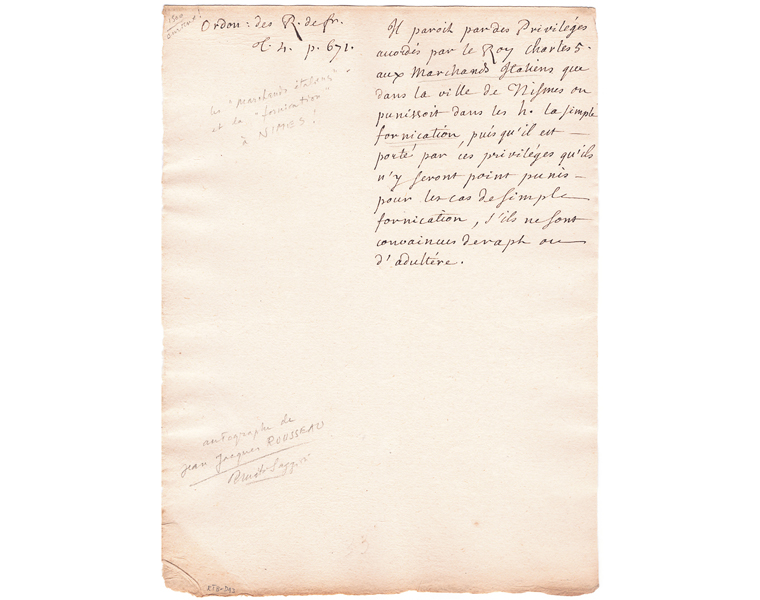 Ordon: des R. de fr.
t. 4. p. 671.
les "Marchands italiens"
et la "fornication"
à NIMES!
Il paroit par des Privilèges
acordés par le Roy Charles 5.
aux Marchands Italiens que
dans la ville de Nismes on
punissoit dans les h. la simple
fornication, puisqu'il est —
porté par ces privilèges qu'ils
n'y seront point punis —
pour les cas de simple
fornication, s'ils ne sont
convaincus de rapt ou
d'adultére.
autographe de
Jean Jacques ROUSSEAU